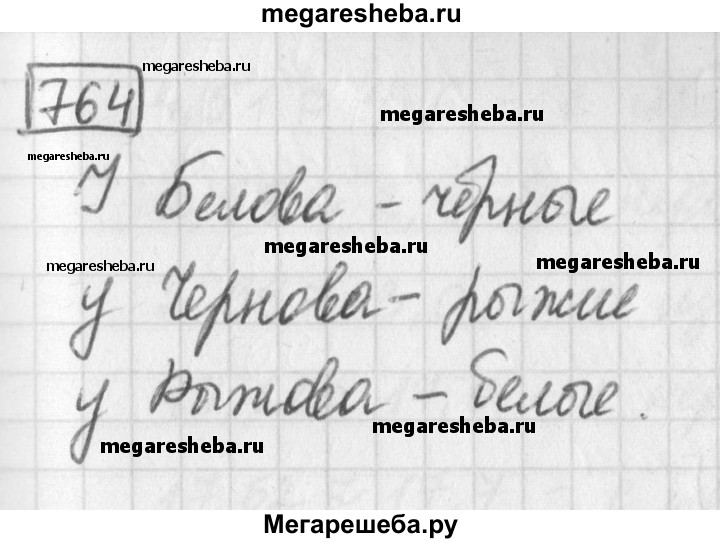 megaresheba.ru
764
megaresheba.ru
megaresheba.ru
megaresheba.ru
У Белова - чёрные
megaresheba.ru
megaresheba.ru
megaresheba.ru
у Чернова - рыжие
у Рыжова - белые.
megaresheba.ru
megaresheba.ru
Мегарешеба.ру